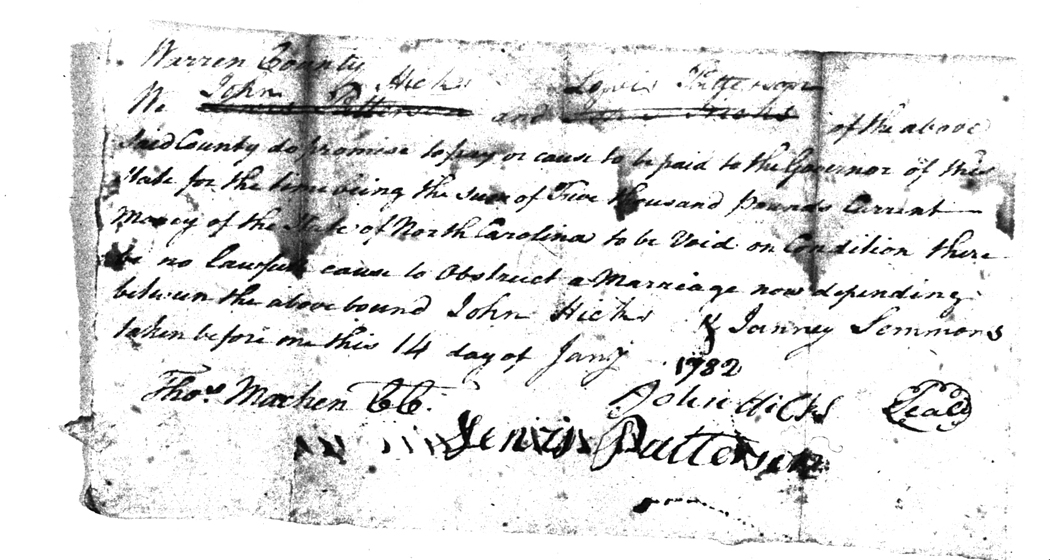 Warren County
John Hicks Lewis Patterson
We Lewis Patterson and John Hicks of the above
said County do promise to pay or cause to be paid to the Governor of this
State for the time being the Sum of Five thousand pounds Current
Money of the State of North Carolina to be Void on Condition there
be no lawfull cause to Obstruct a Marriage now depending
between the above bound John Hicks & Janney Semmons
taken before me this 14 day of Jany 1782
Thos. Machen CC. John Hicks Seal
Lewis Patterson